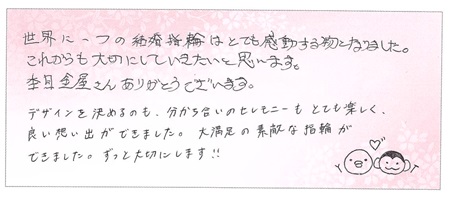 世界に一つの結婚指輪はとても感動する物となりました。
これからも大切にしていきたいと思います。
杢目金屋さんありがとうございます。
デザインを決めるのも、分かち合いのセレモニーもとても楽しく、
良い想い出ができました。大満足の素敵な指輪が
できました。ずっと大切にします!!